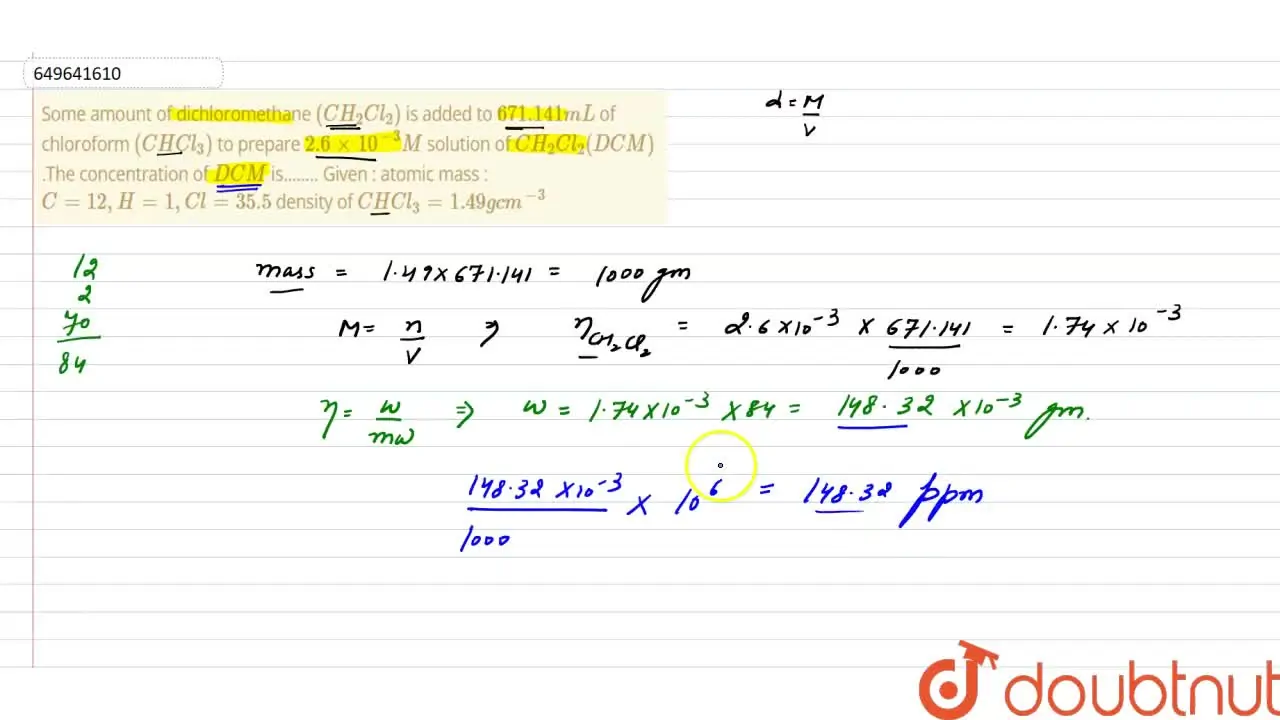 649641610
Some amount of dichloromethane (CH₂Cl₂) is added to 671.141mL of
chloroform (CHCl₃) to prepare 2.6 × 10⁻³M solution of CH₂Cl₂(DCM)
.The concentration of DCM is........ Given : atomic mass :
C = 12, H = 1, Cl = 35.5 density of CHCl₃ = 1.49gcm⁻³
d = M/V
12
2
70
84
mass = 1.49 × 671.141 = 1000 gm
M = n/V ⇒ ηCH₂Cl₂ = 2.6 × 10⁻³ × 671.141/1000 = 1.74 × 10⁻³
η = w/mw ⇒ w = 1.74 × 10⁻³ × 84 = 148.32 × 10⁻³ gm.
148.32 × 10⁻³/1000 × 10⁶ = 148.32 ppm
doubtnut